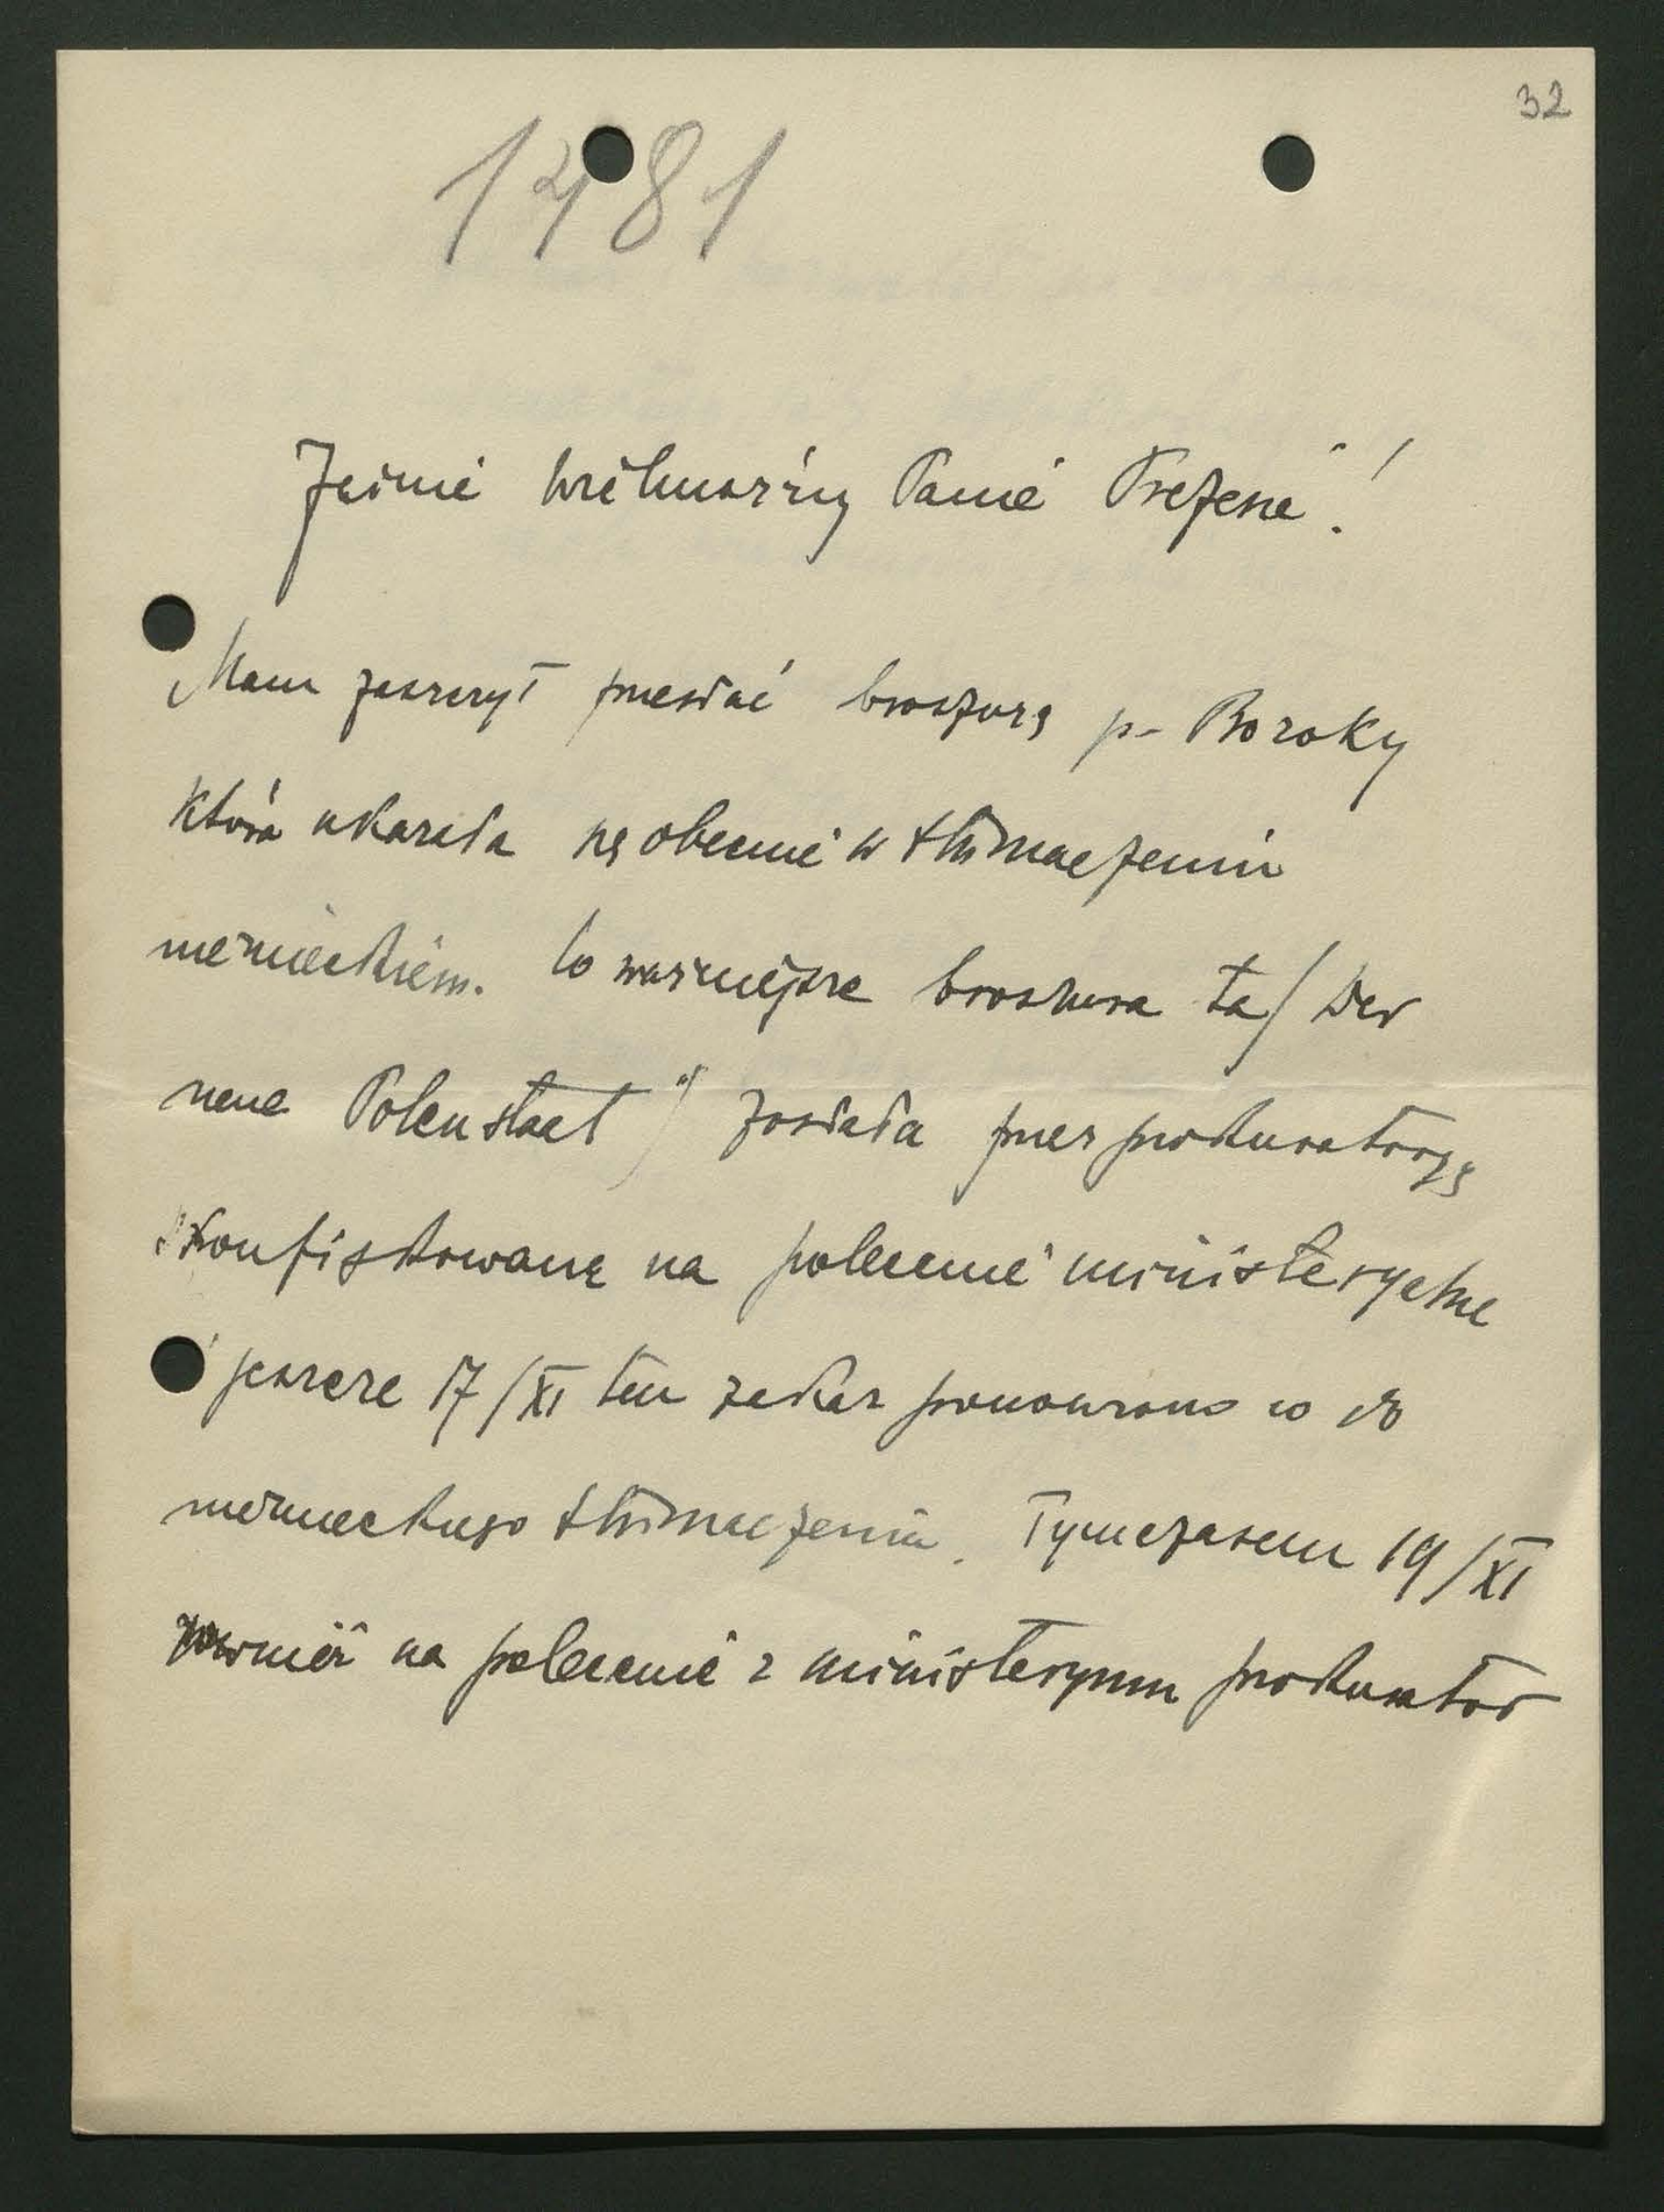 32
1481
Jaśnie wielmożny Panie Prezesie!
Mam zaszczyt przesłać broszurę p. Boroky
która ukazała się obecnie w tłómaczeniu
niemieckiem. Co ważniejsze broszura ta (Der
neue Polenstaat") została przez prokuratoryę
skonfiskowaną na polecenie ministeryalne
i jeszcze 17/XI ten zakaz ponowiono co do
niemieckiego tłómaczenia. Tymczasem 19/XI
również na polecenie z ministeryum prokurator